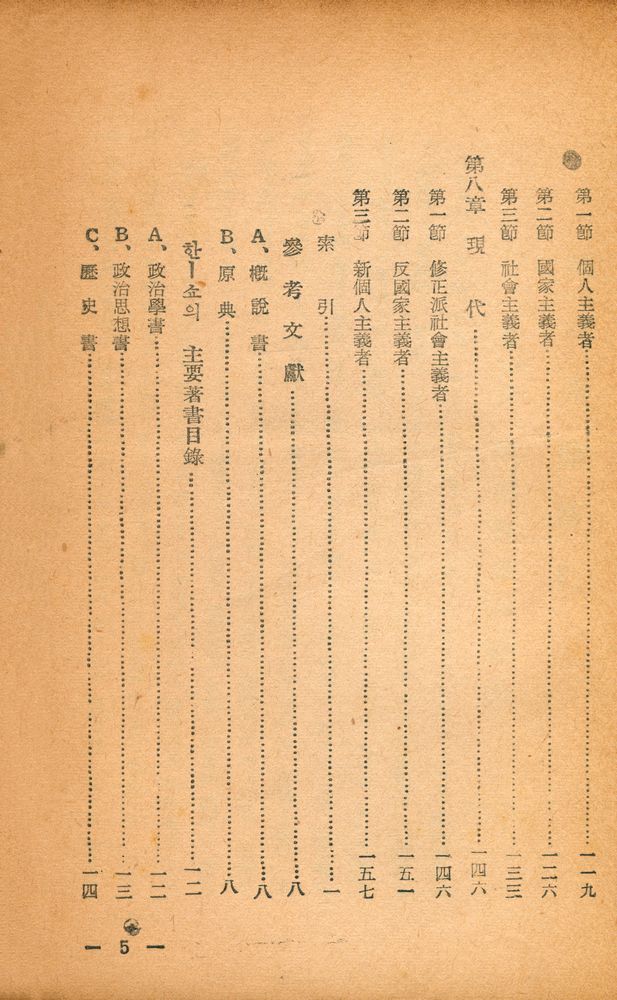 第一節 個人主義者 一一九
第二節 國家主義者 一二六
第三節 社會主義者 一三三
第八章 現代 一四六
第一節 修正派社會主義者 一四六
第二節 反國家主義者 一五一
第三節 新個人主義者 一五七
索引 一
參考文獻 八
A、概說書 八
B、原典 八
한ㅣ쇼의 主要著書目錄 一二
A、政治學書 一二
B、政治思想書 一三
C、歷史書 一四
— 5 —